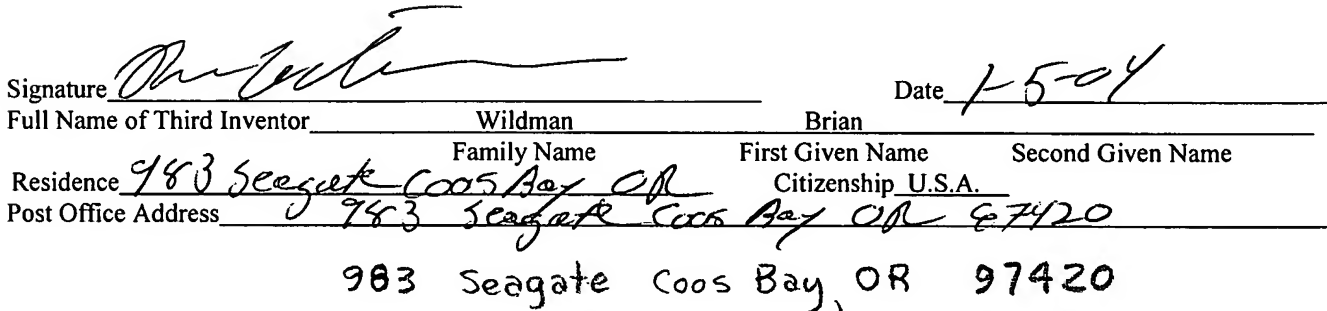 Signature Date 1-5-04
Full Name of Third Inventor Wildman Brian
Family Name First Given Name Second Given Name
Residence 983 Seagate Coos Bay OR Citizenship U.S.A.
Post Office Address 983 Seagate Coos Bay OR 97420
983 Seagate Coos Bay, OR 97420